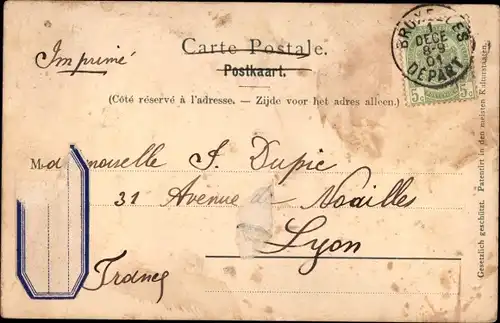 Carte Postale.
Postkaart.
Imprimé
(Côté réservé à l'adresse. – Zijde voor het adres alleen.)
BRUXELLES
1
DECE
8-9
01
DEPART
5c 5c
Mademoiselle J. Dupic
31 Avenue de Noailles
Lyon
France
Gesetzlich geschützt. Patentirt in den meisten Kulturstaaten.